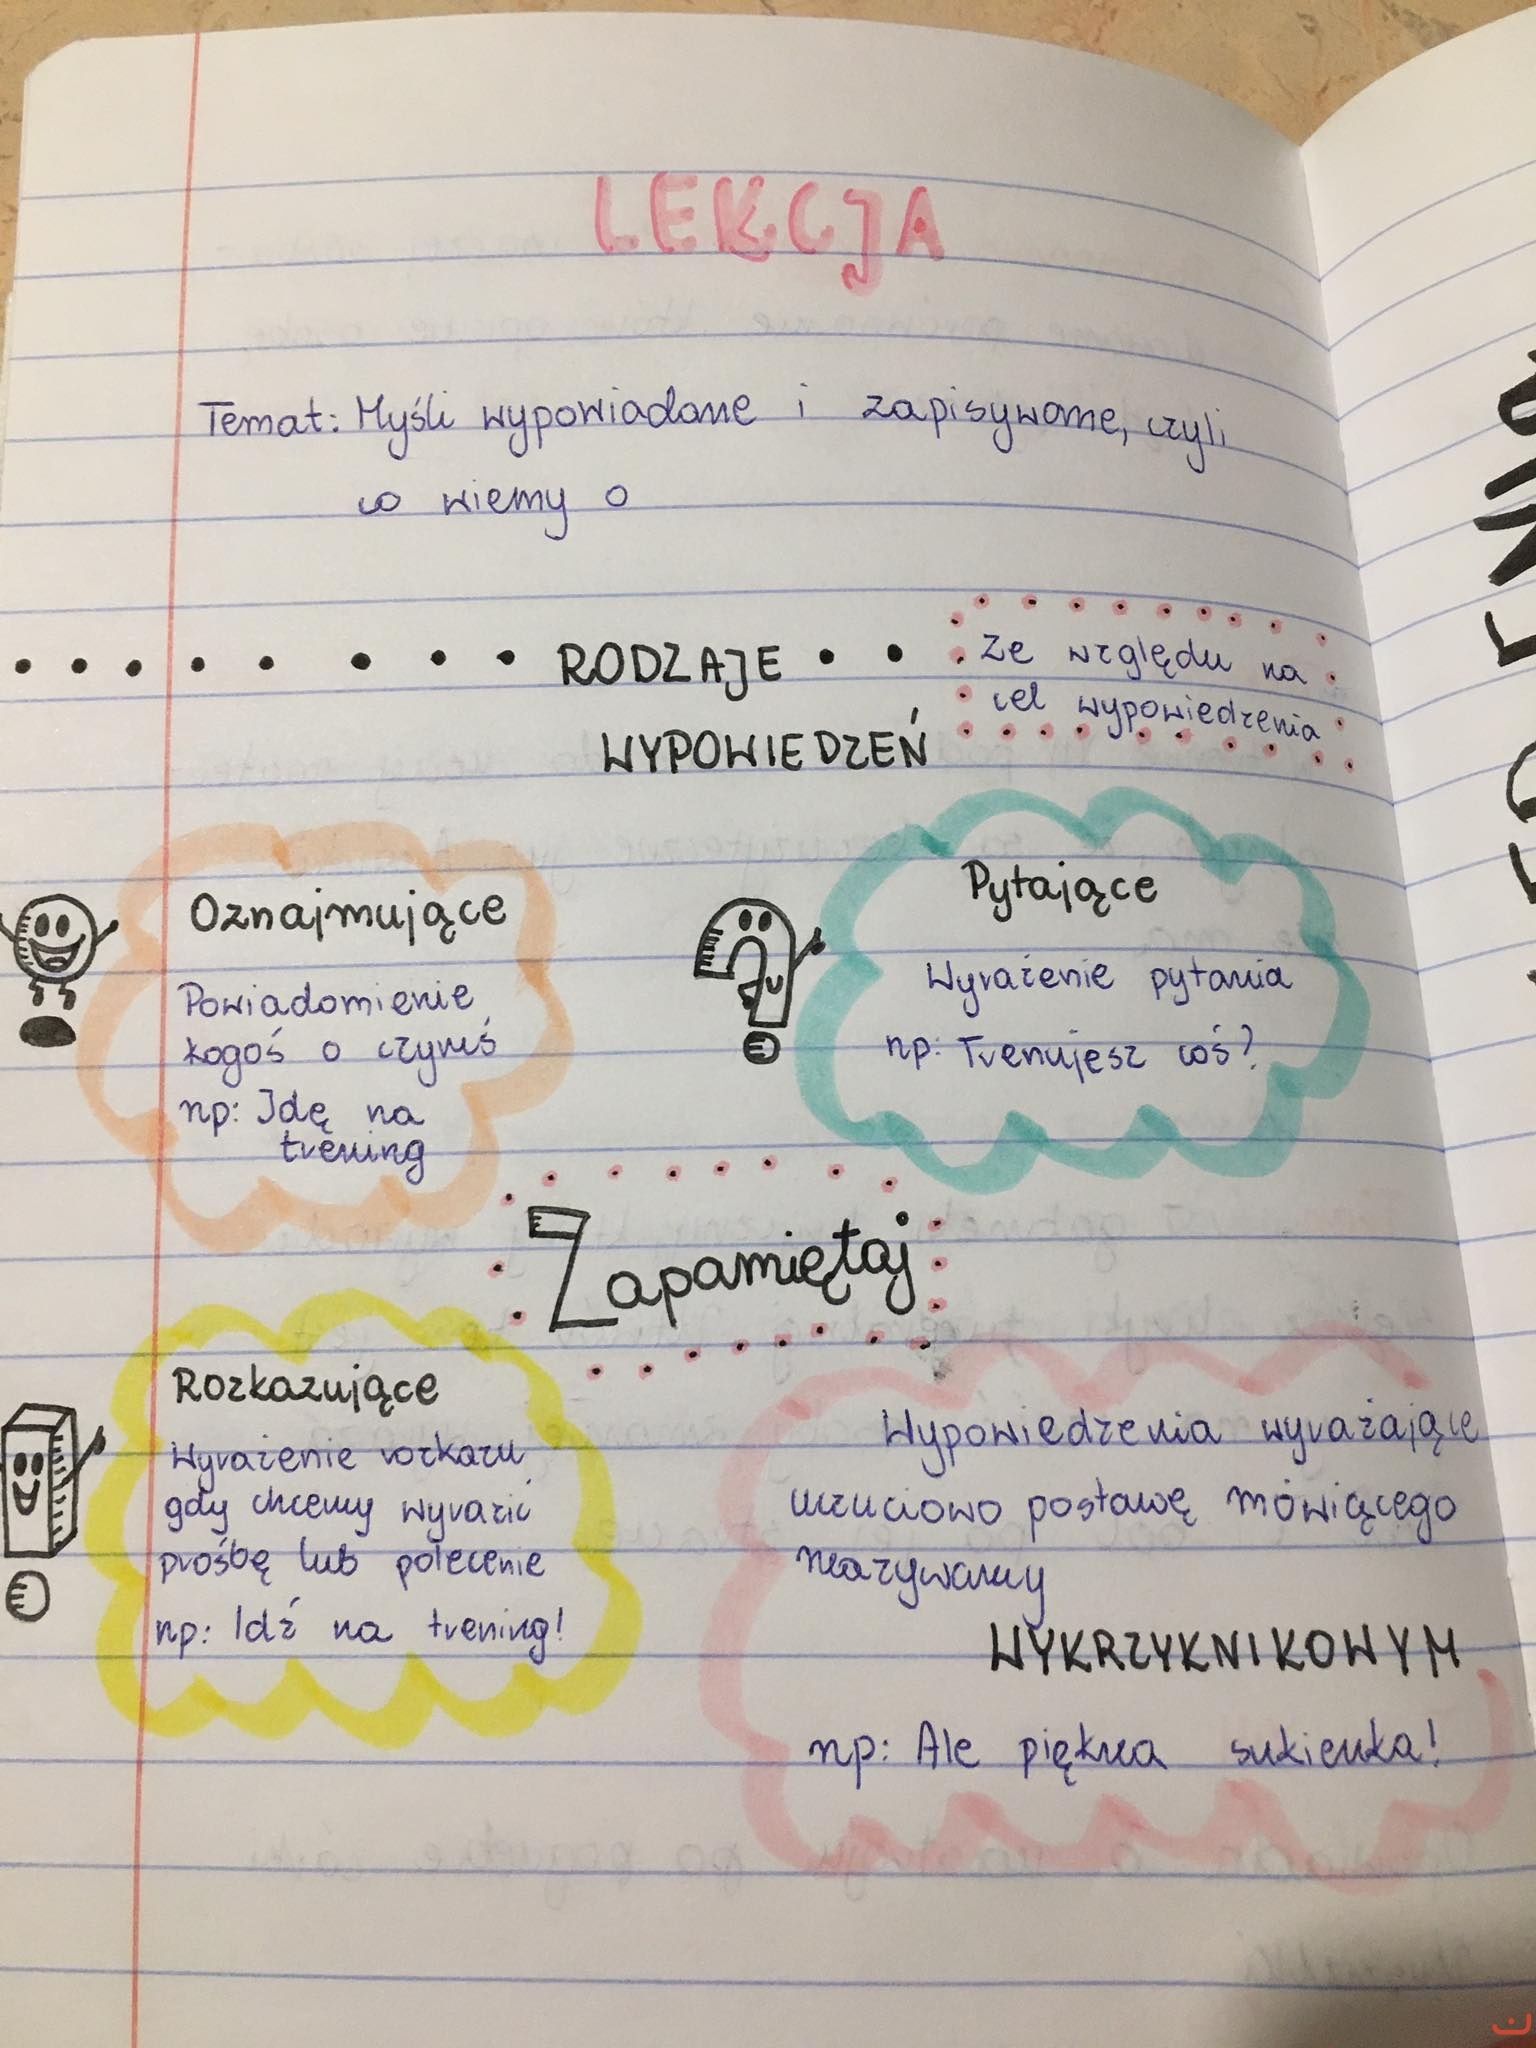 LEKCJA
Temat: Myśli wypowiadane i zapisywane, czyli
co wiemy o
RODZAJE
WYPOWIEDZEŃ
Ze względu na
cel wypowiedzenia
Oznajmujące
Powiadomienie
kogoś o czymś
np: Idę na
trening
Pytające
Wyrażenie pytania
np: Trenujesz coś?
Zapamiętaj
Rozkazujące
Wyrażenie rozkazu
gdy chcemy wyrazić
prośbę lub polecenie
np: Idź na trening!
Wypowiedzenia wyrażające
uczuciowo postawę mówiącego
nazywamy
WYKRZYKNIKOWYM
np: Ale piękna sukienka!